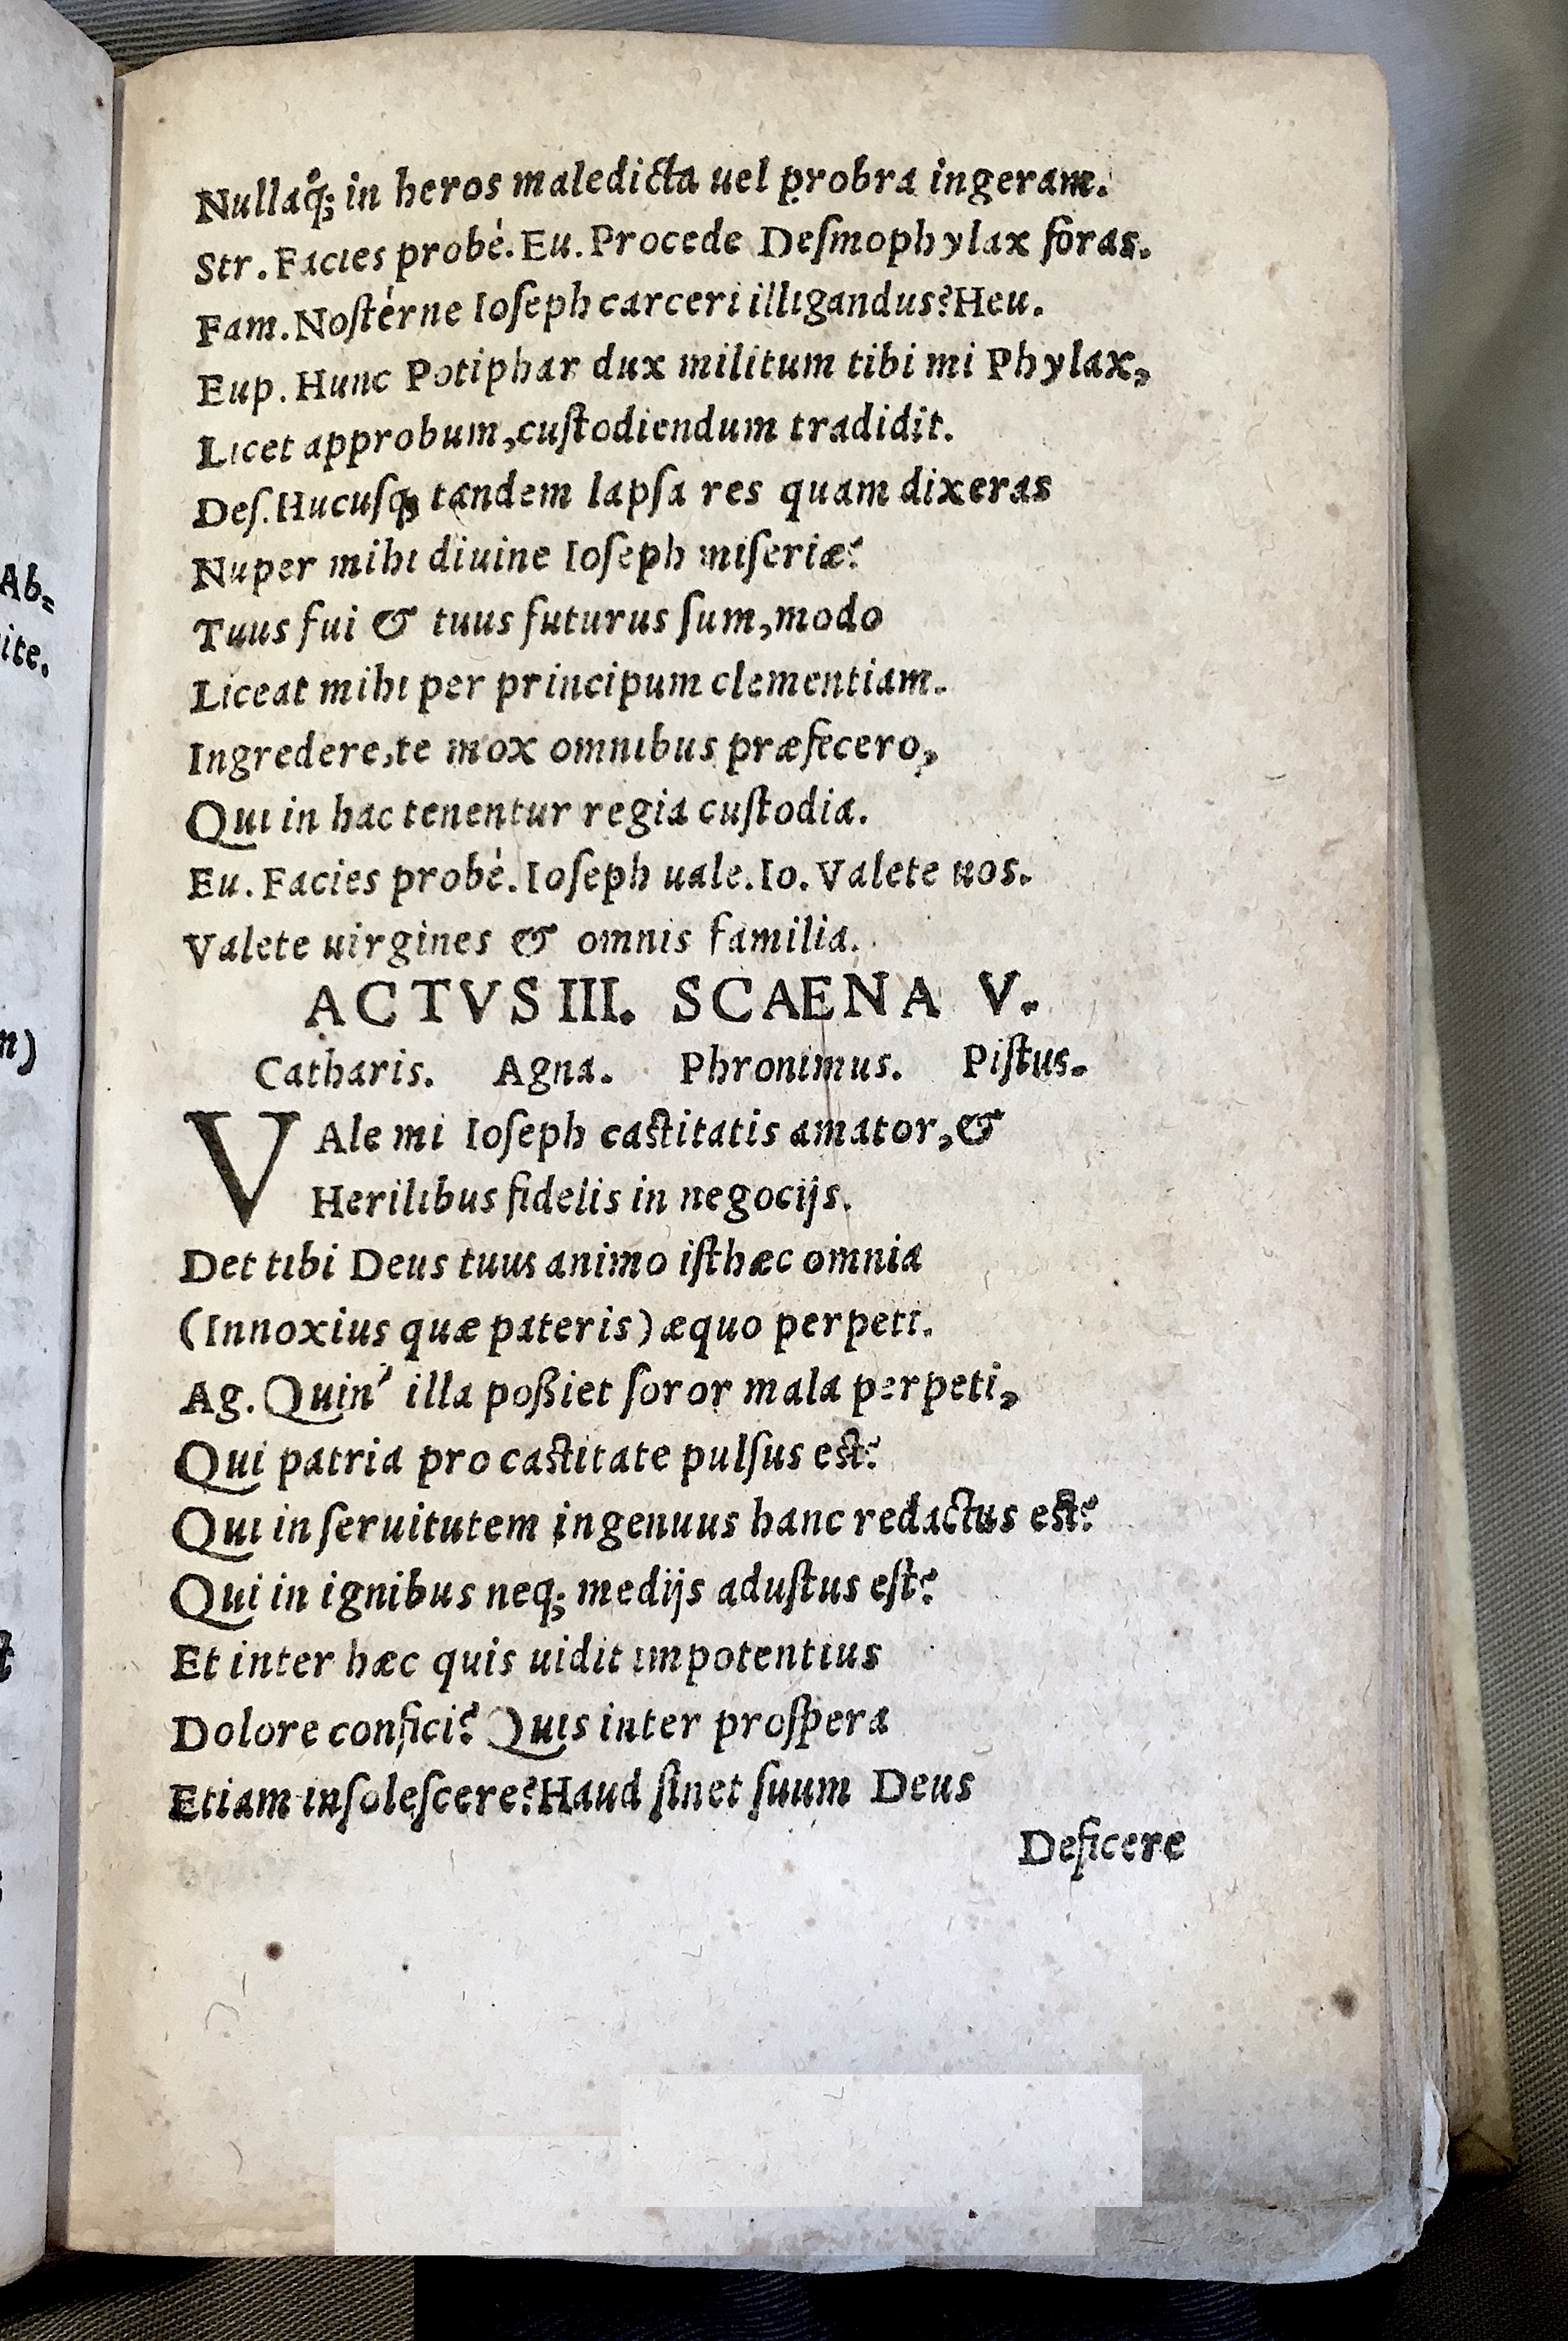 Nullaq́; in heros maledicta uel probra ingeram.
Str. Facies probè. Eu. Procede Deſmophylax foras.
Fam. Noſtérne Ioſeph carceri illigandus? Heu.
Eup. Hunc Potiphar dux militum tibi mi Phylax,
Licet approbum, cuſtodiendum tradidit.
Deſ. Hucuſq; tandem lapſa res quam dixeras
Nuper mihi diuine Ioſeph miſeriæ?
Tuus fui & tuus futurus ſum, modo
Liceat mihi per principum clementiam.
Ingredere, te mox omnibus præfecero,
Qui in hac tenentur regia cuſtodia.
Eu. Facies probè. Ioſeph uale. Io. Valete uos.
Valete uirgines & omnis familia.
ACTVS III. SCAENA V.
Catharis. Agna. Phronimus. Piſtus.
VAle mi Ioſeph caſtitatis amator, &
Herilibus fidelis in negocijs.
Det tibi Deus tuus animo iſthæc omnia
(Innoxius quæ pateris) æquo perpeti.
Ag. Quin' illa poßiet ſoror mala perpeti,
Qui patria pro caſtitate pulſus eſt?
Qui in ſeruitutem ingenuus hanc redactus eſt?
Qui in ignibus neq; medijs aduſtus eſt?
Et inter hæc quis uidit impotentius
Dolore confici? Quis inter proſpera
Etiam inſoleſcere? Haud ſinet ſuum Deus
Deficere
Ab=
ite.
n)